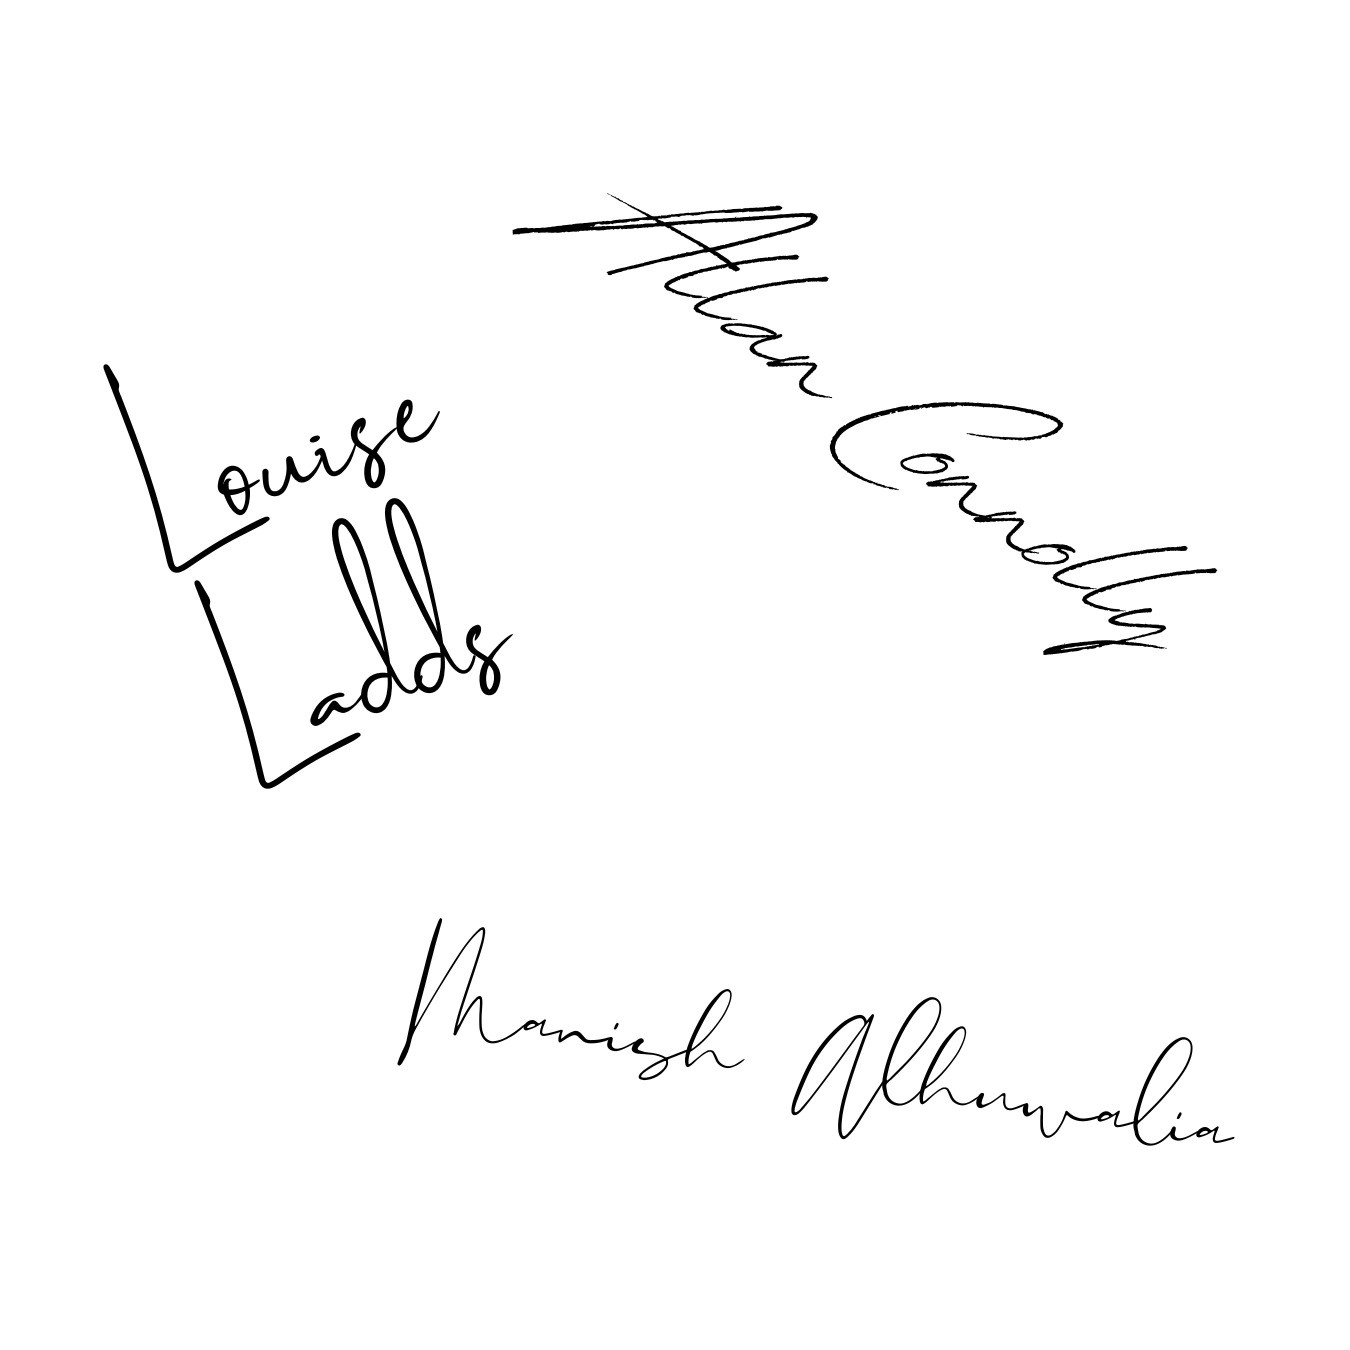 Allan Connolly
Louise
Ladds
Manish Alhuwalia